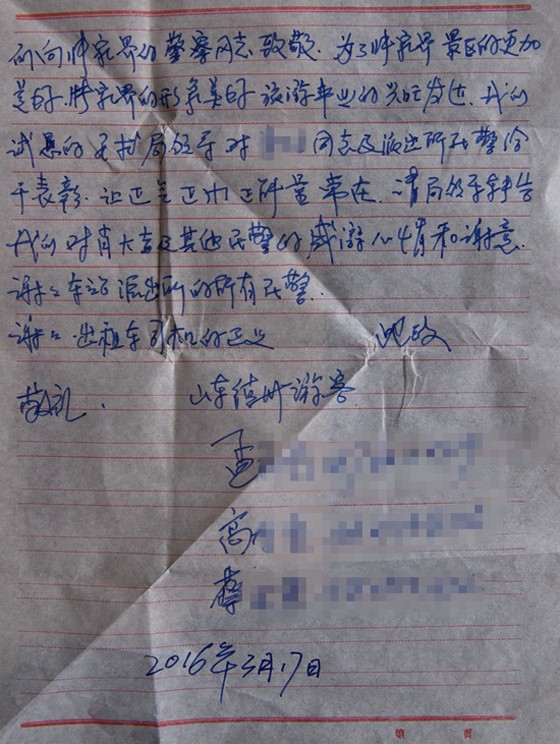 们向张家界的警察同志致敬.为了张家界景区的更加
美好.张家界的形象美好旅游事业的兴旺发达.我们
试恳的 局领导对 同志及派出所民警给
于表彰.让正气正 正能量常在.请局领导转告
我们对肖大 及其他民警的感激心情和谢意.
谢谢车站派出所的所有民警.
谢谢出租车司机的正义 此致
敬礼. 山东德州游客
孟
高
2016年3月17日